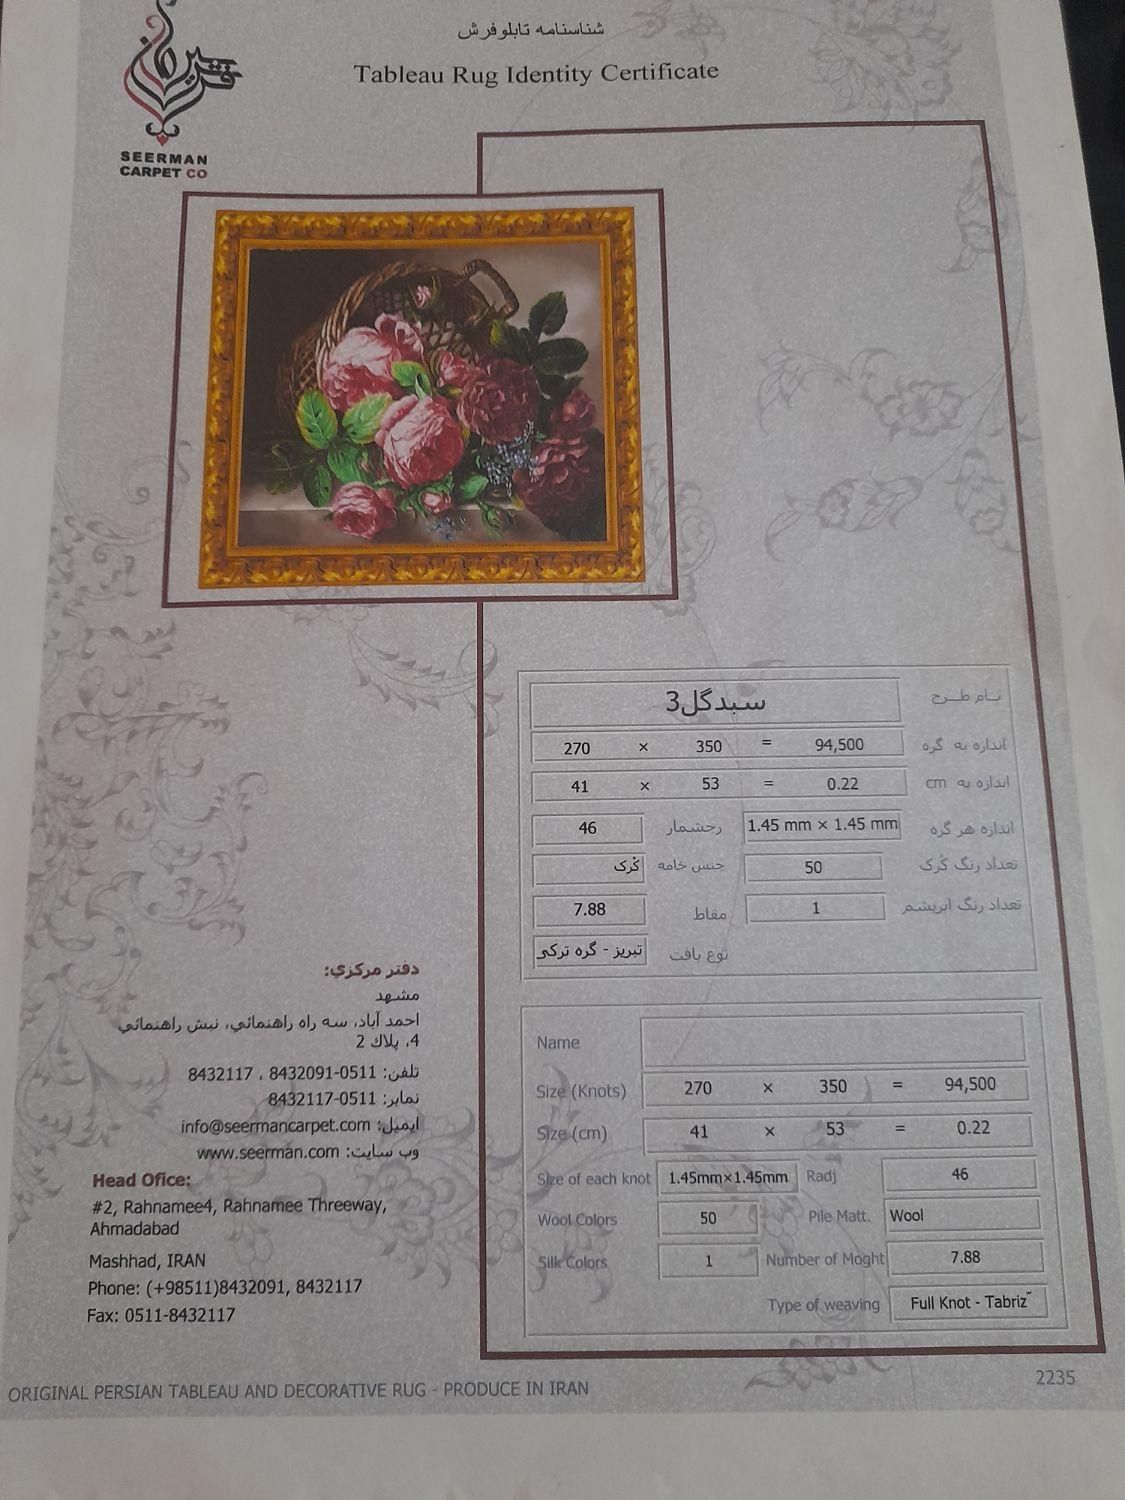 شناسنامه تابلوفرش
Tableau Rug Identity Certificate
سیرمان
فرش
SEERMAN
CARPET CO
نـام طـرح
سبدگل3
اندازه به گره
270 × 350 = 94,500
اندازه به cm
41 × 53 = 0.22
اندازه هر گره 1.45 mm × 1.45 mm رجشمار 46
تعداد رنگ کُرک 50 جنس خامه کُرک
تعداد رنگ ابریشم 1 مقاط 7.88
نوع بافت تبریز - گره ترکی
دفتر مرکزي:
مشهد
احمد آباد، سه راه راهنمائي، نبش راهنمائي
4، پلاك 2
تلفن: 0511-8432091 ، 8432117
نمابر: 0511-8432117
ایمیل: info@seermancarpet.com
وب سایت: www.seerman.com
Head Ofice:
#2, Rahnamee4, Rahnamee Threeway,
Ahmadabad
Mashhad, IRAN
Phone: (+98511)8432091, 8432117
Fax: 0511-8432117
Name
Size (Knots) 270 × 350 = 94,500
Size (cm) 41 × 53 = 0.22
Size of each knot 1.45mm×1.45mm Radj 46
Wool Colors 50 Pile Matt. Wool
Silk Colors 1 Number of Moght 7.88
Type of weaving Full Knot - Tabriz
ORIGINAL PERSIAN TABLEAU AND DECORATIVE RUG - PRODUCE IN IRAN
2235